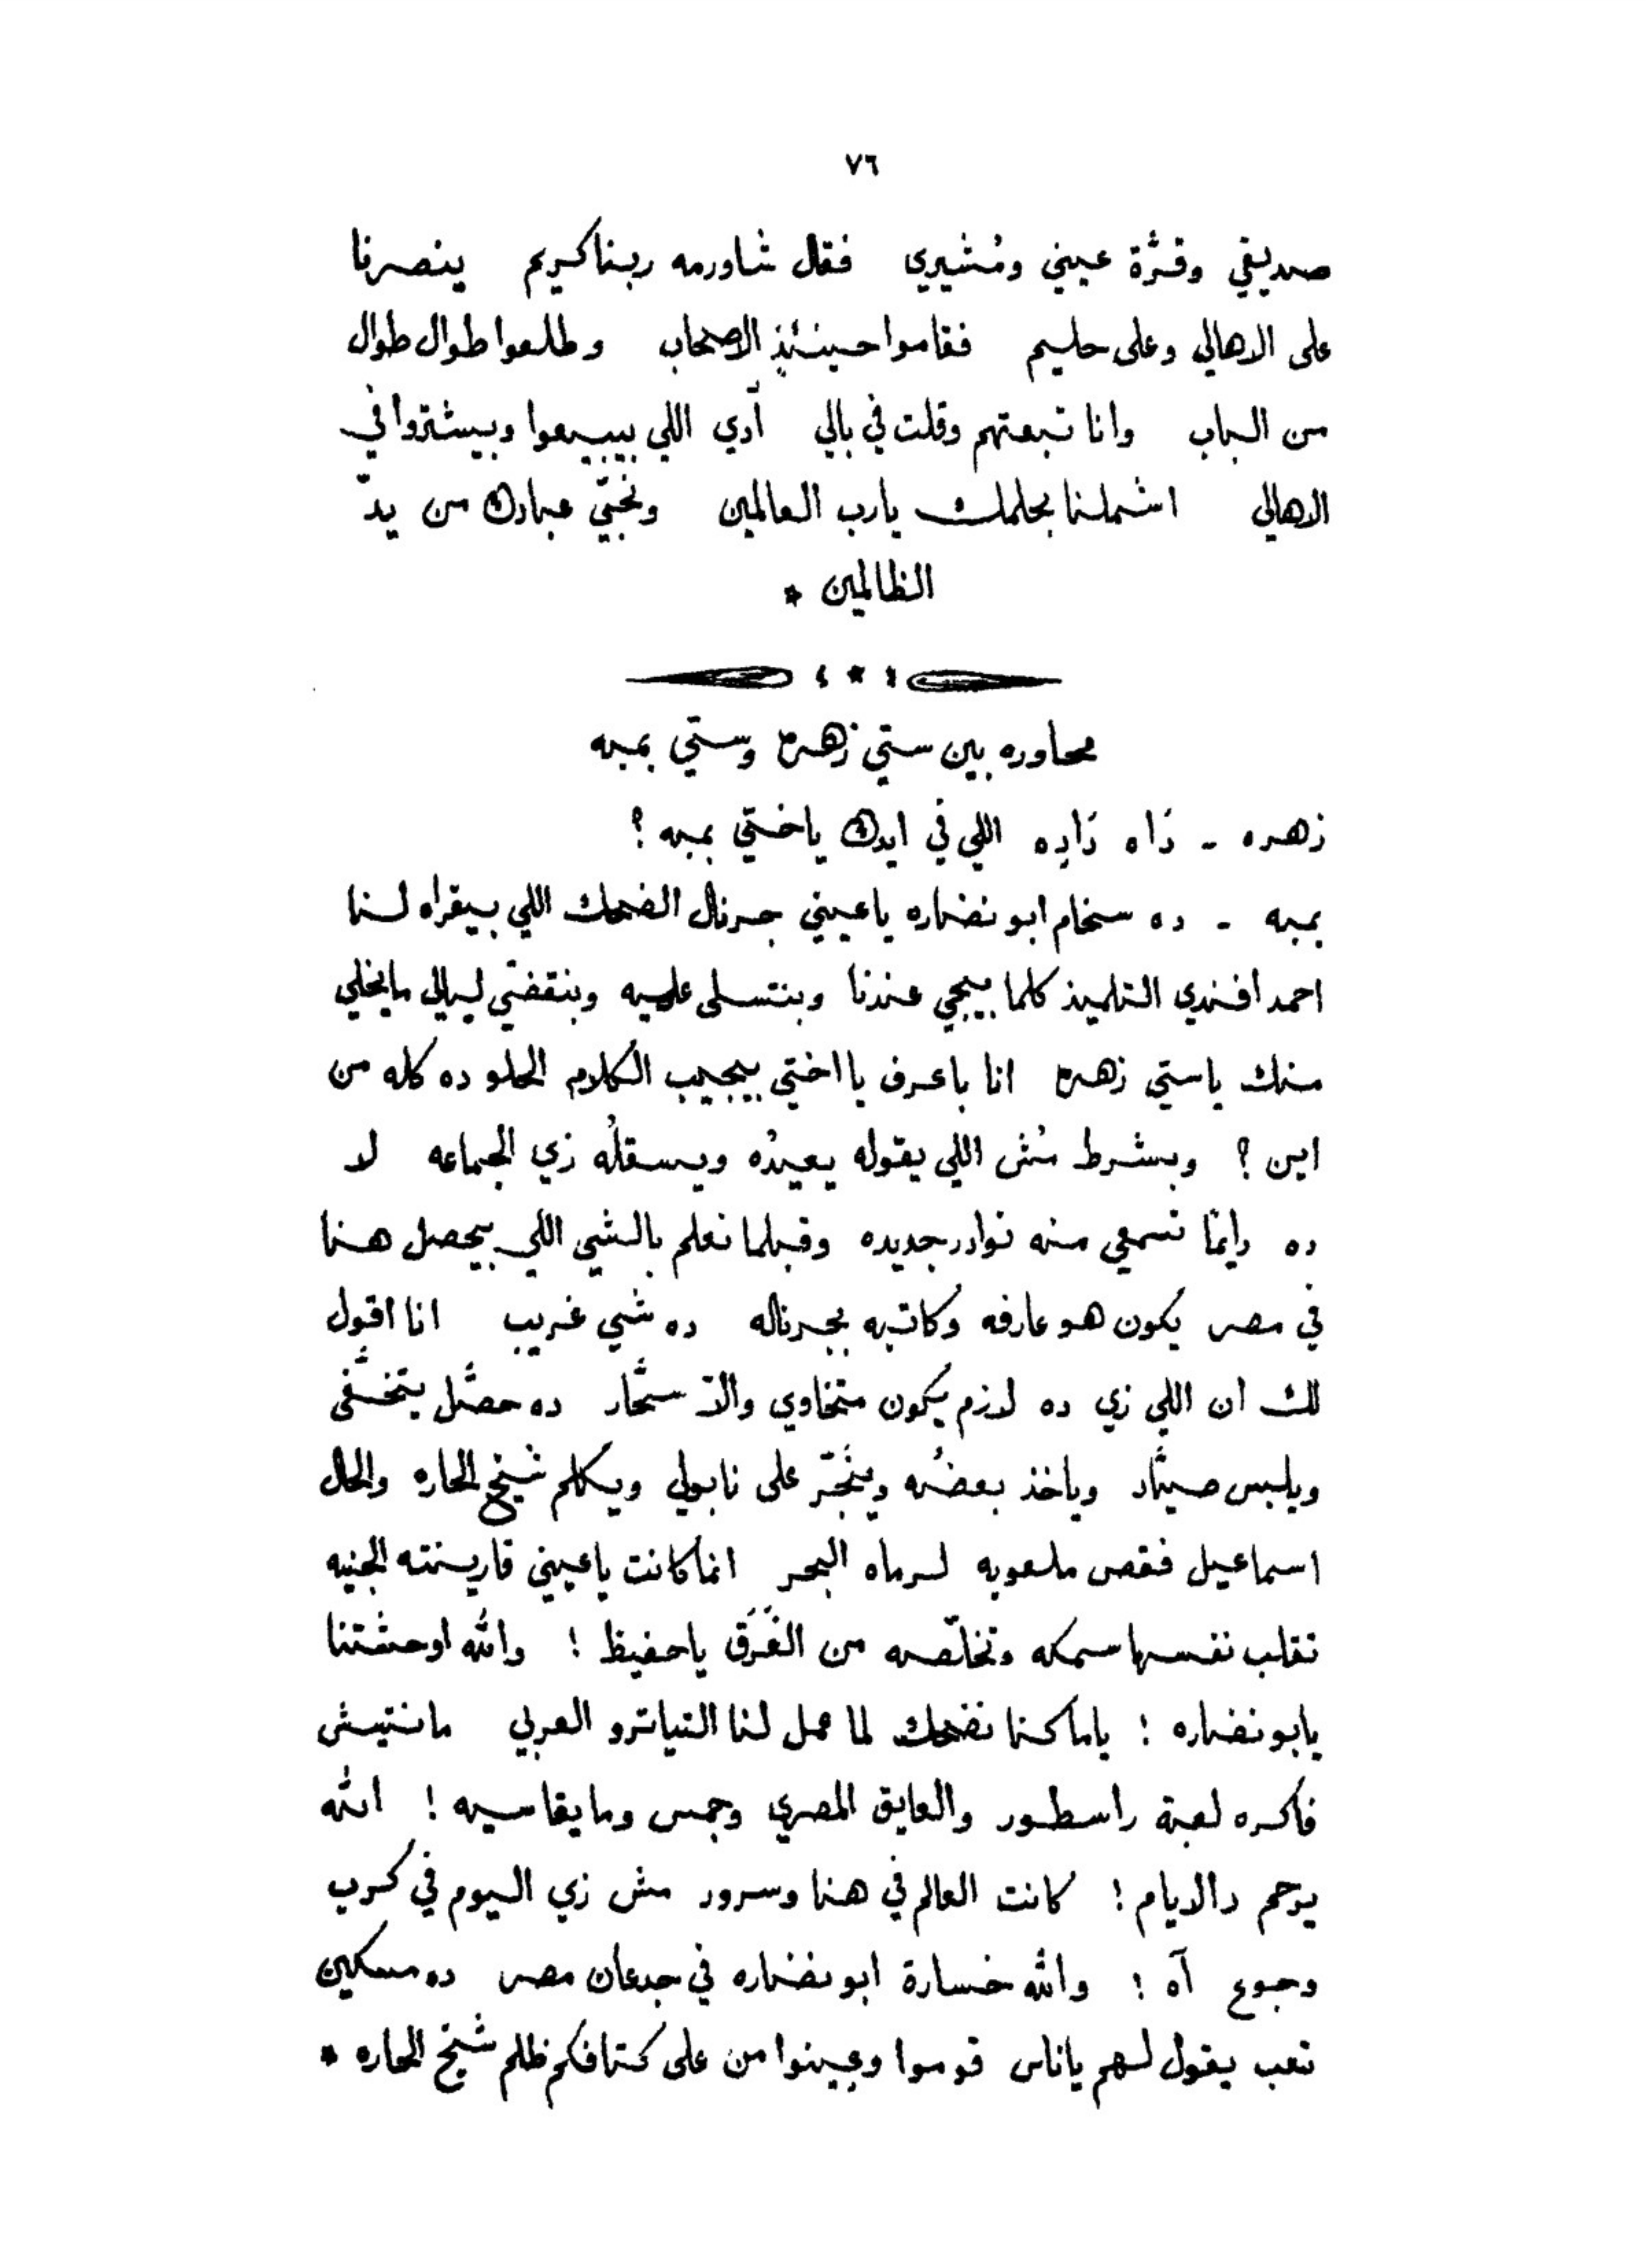 ٧٦
صديقي وقرّة عيني ومُشيري فقال شاورمه ربنا كريم ينصرنا
على الاهالي وعلى حليم فقاموا حينئذٍ الاصحاب وطلعوا طوال طوال
من الباب وانا تبعتهم وقلت في بالي آدي اللي بيبيعوا وبيشتروا في
الاهالي اشملنا بحلمك يا رب العالمين ونجّي عبادك من يدّ
الظالمين *
محاوره بين ستي زهره وستي بمبه
زهره - دَاه دَاِده اللي في ايدك ياختي بمبه ؟
بمبه - ده سخام ابو نضاره يا عيني جرنال الضحك اللي بيقراه لنا
احمد افندي التلميذ كلما بييجي عندنا وبنتسلى عليه وبنقضّي ليالي ما يخلي
منك ياستي زهره انا باعرف يا اختي بيجيب الكلام الحلو ده كله من
اين ؟ وبشرط مُش اللي يقوله يعيدُه ويسقلُه زي الجماعه لا
ده دايمًا تسمعي منه نوادر جديده وقبلما نعلم بالشي اللي بيحصل هنا
في مصر يكون هو عارفه وكاتبه بجرناله ده شي غريب انا اقول
لك ان اللي زي ده لازم يكون متخاوي والاّ سحّار ده حصّل يتخفّى
ويلبس صيّاد وياخذ بعضُه ويتجرّ على نابولي ويكلم شيخ الحاره والحال
اسماعيل فقص ملعوبه لرماه البحر انما كانت يا عيني قارينته الجنيه
تقلب نفسها سمكه وتخلّصه من الغَرَق ياحفيظ ! والله اوحشتنا
يابو نضاره ! ياما كنا نضحك لما عمل لنا التياترو العربي مانتيش
فاكره لعبة راسطور والعايق المصري وحمس ومايقاسيه ! الله
يرحم دالايام ! كانت العالم في هنا وسرور مش زي اليوم في كرب
وجوع آه ! والله خسارة ابو نضاره في جدعان مصر ده مسكين
تعب يقول لهم ياناس قوموا وعينوا من على كتافكم ظلم شيخ الحاره *